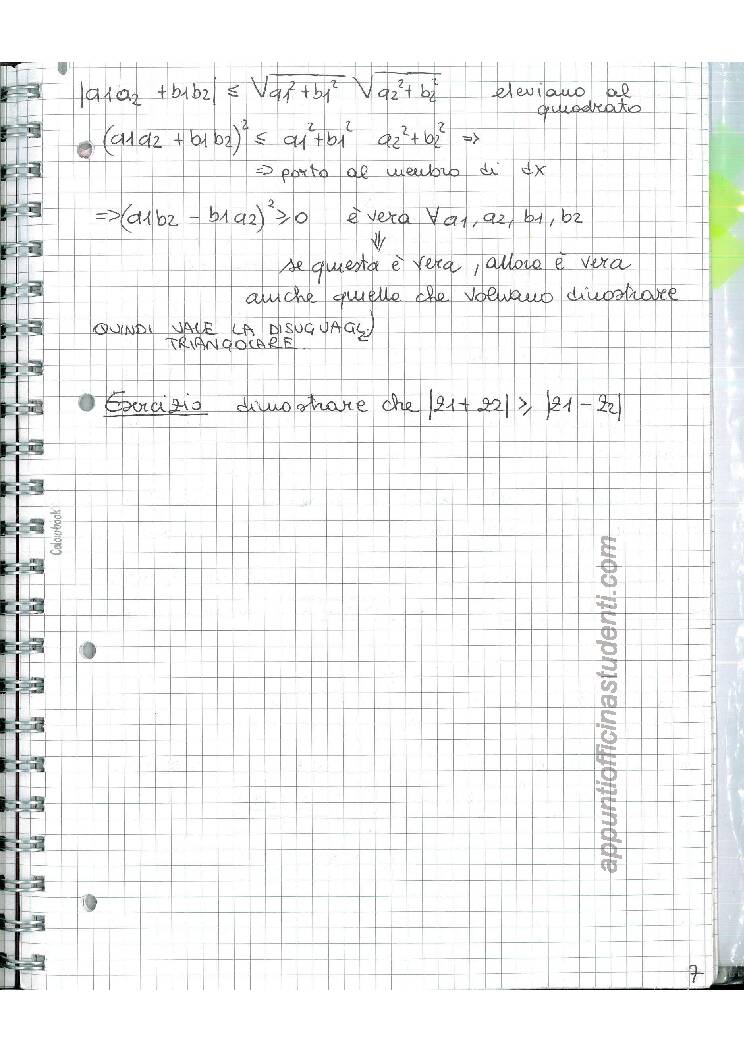 |a1a2 + b1b2| ≤ √a1²+b1² √a2²+b2² eleviamo al
quadrato
(a1a2 + b1b2)² ≤ a1²+b1² a2²+b2² =>
=> porto al membro di dx
=>(a1b2 - b1a2)² ≥ 0 è vera ∀a1, a2, b1, b2
⇓
se questa è vera, allora è vera
anche quella che volevamo dimostrare
QUINDI VALE LA DISUGUAGL)
TRIANGOLARE
Esercizio dimostrare che |z1 + z2| ≥ |z1 - z2|
Colourbook
appuntiofficinastudenti.com
7